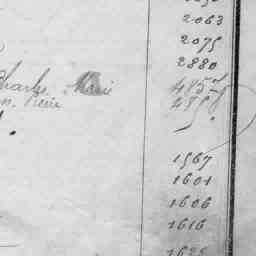 2063
2075
2880
Charles, Marie 4857
n, Pierre 4858
1567
1601
1606
1616